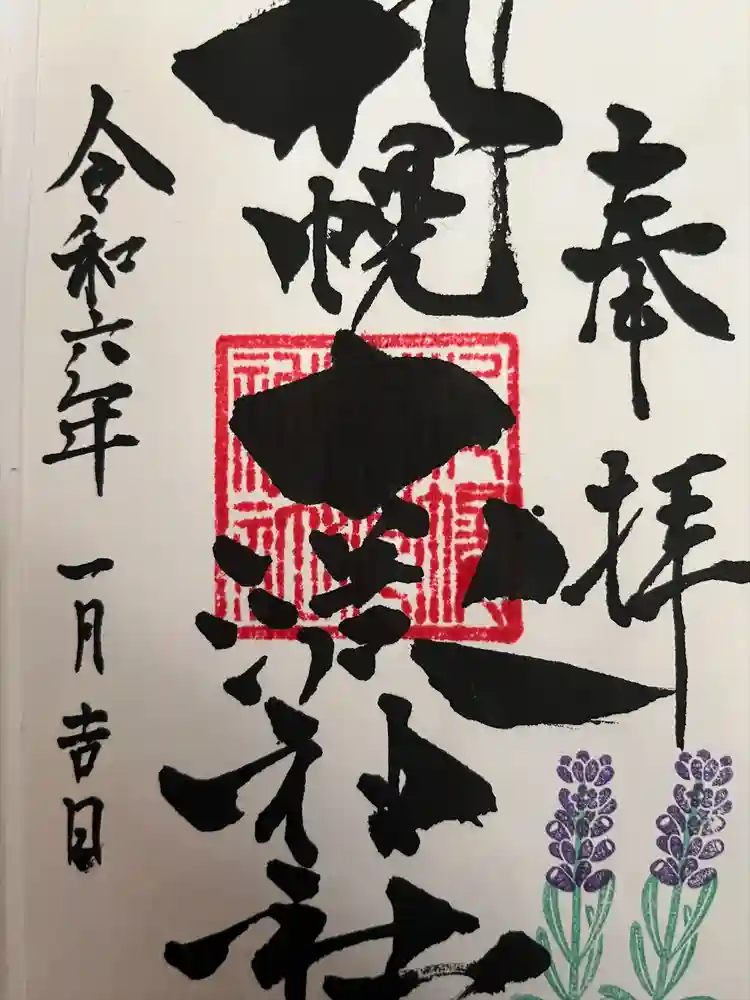 奉拝
札幌
神社
令和六年 一月吉日